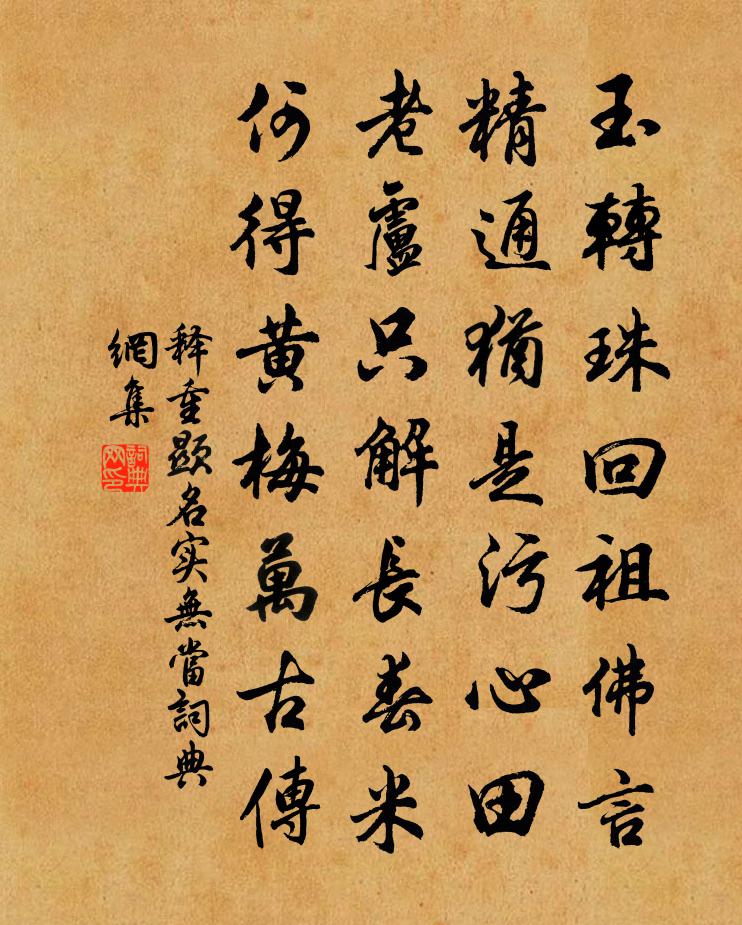 玉轉珠回祖佛言
精通猶是污心田
老盧只解長舂米
何得黃梅萬古傳
释重顯名实無當詞典
網集
詞典
网印